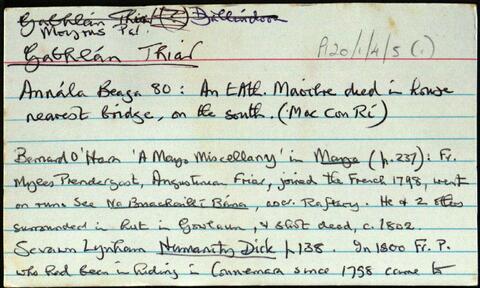 Gabhlán Thiar Ballindoon
P20/1/4/5 (1)
Gabhlán Thiar
Annála Beaga 80: An tAth. Maoilre died in house
nearest bridge, on the south. (Mac Con Rí)
Bernard O'Hara 'A Mayo Miscellany' in Mayo (p.237): Fr.
Myles Prendergast, Augustinian Friar, joined the French 1798, went
on run. See Na Buachaillí Bána, Raftery. He & 2 others
surrounded in hut in Gowlaun, & shot dead, c.1802.
Lynham Humanity Dick p.138. In 1800 Fr. P.
who had been in hiding in Connemara since 1798 came to